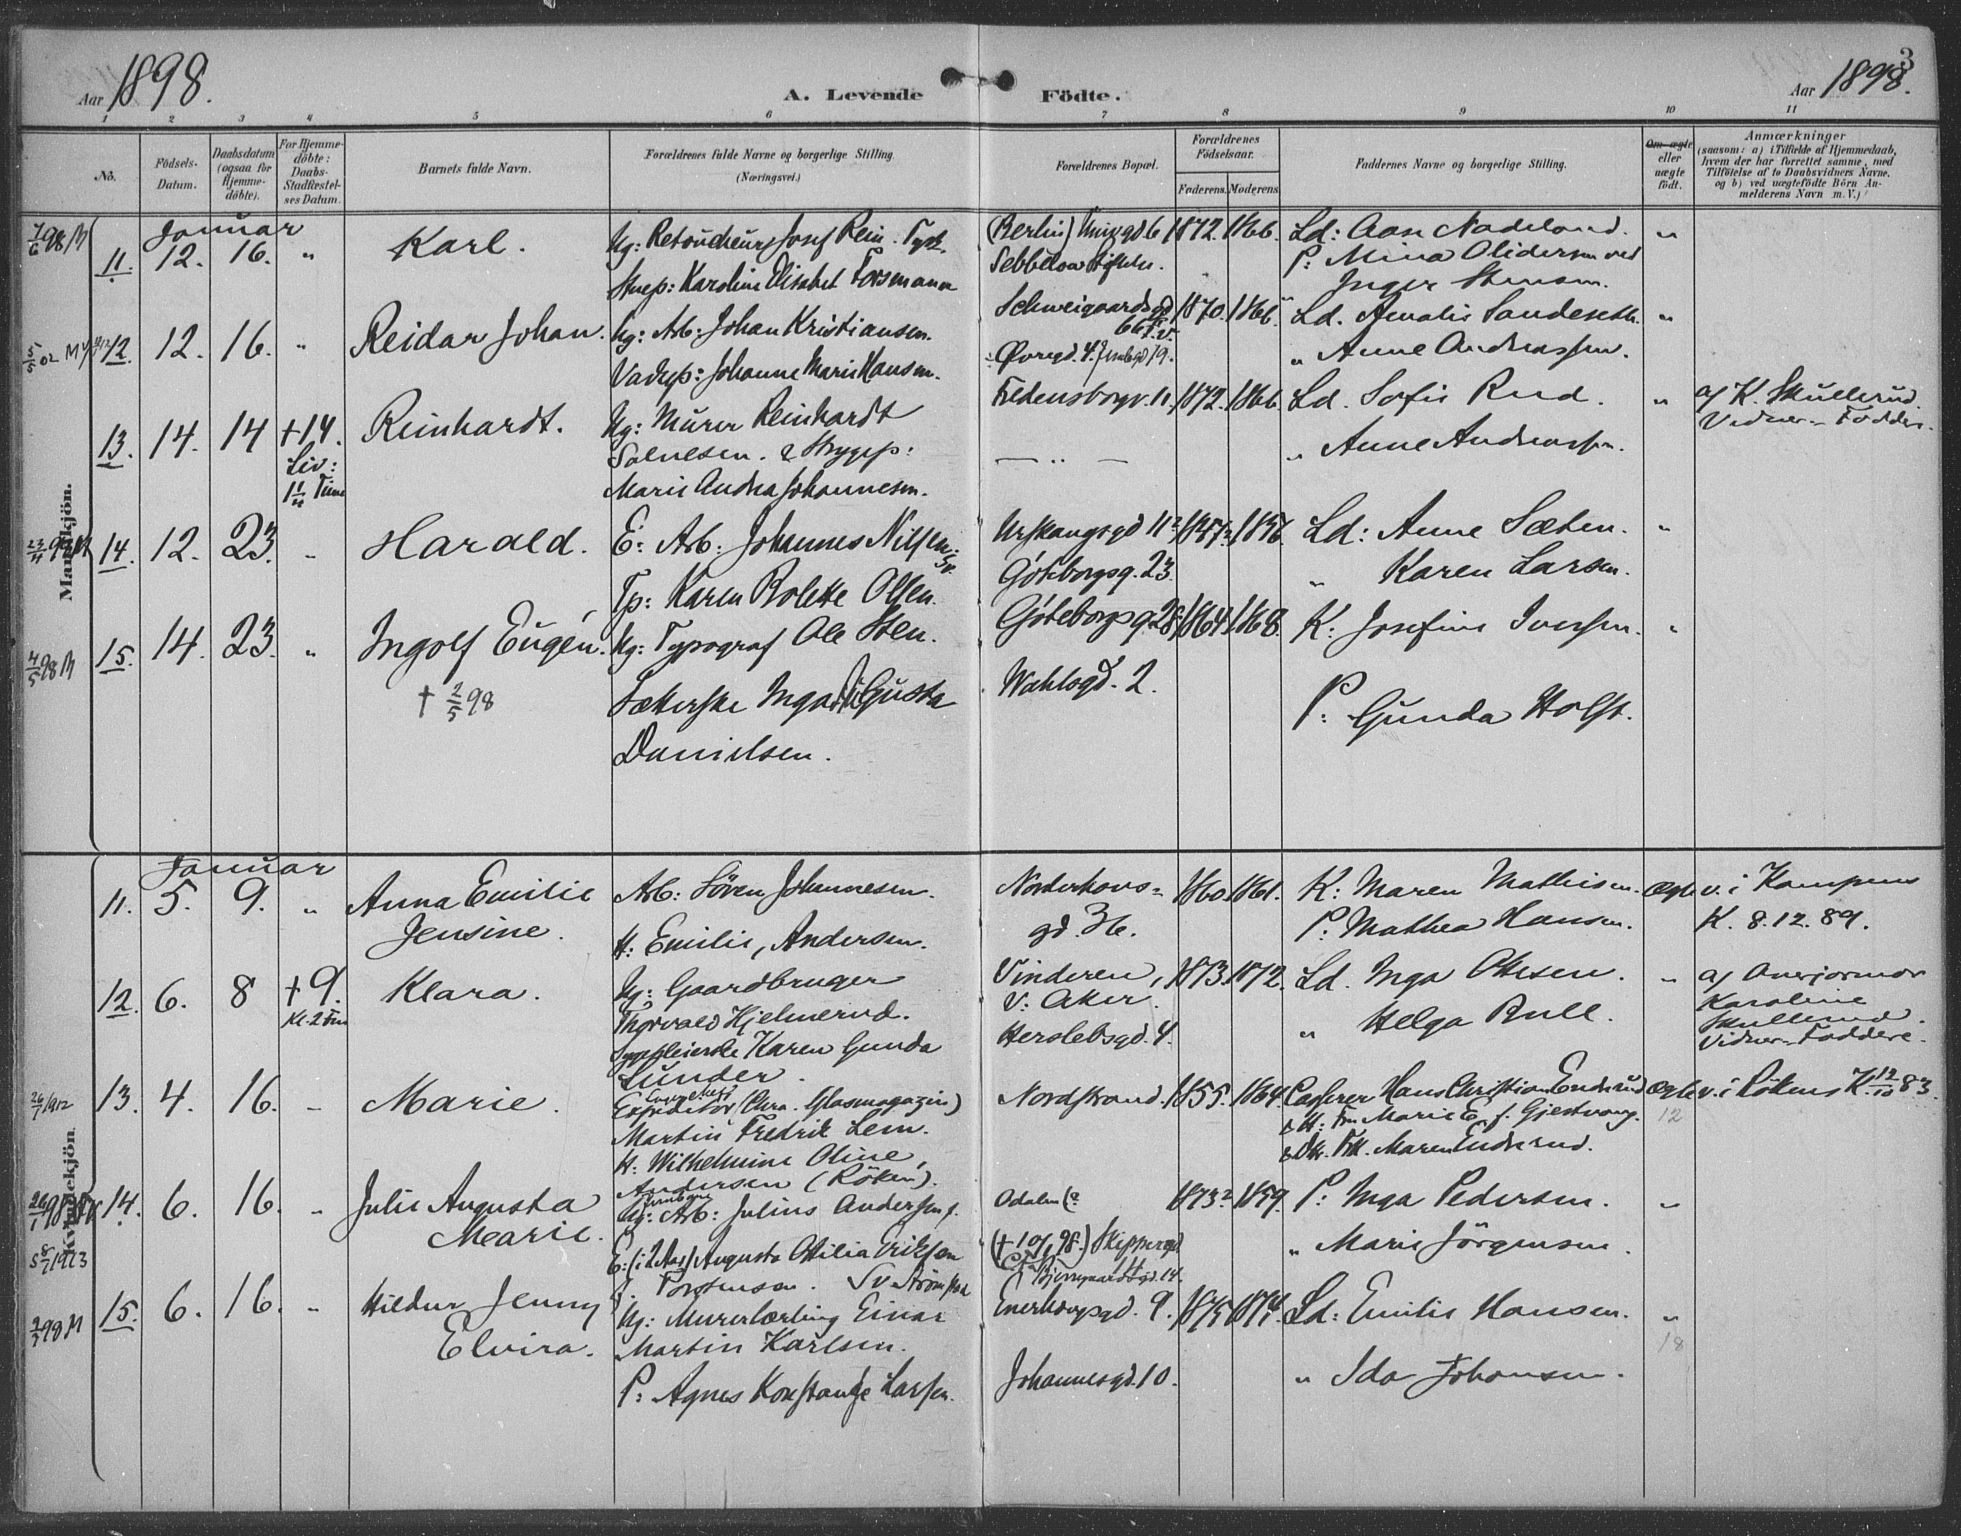 Aar 1898.
A. Levende Födte.
3
Aar 1898.
1 2 3 4 5 6 7 8 9 10 11
No.
Födsels-Datum.
Daabsdatum (ogsaa for Hjemme-döbte).
For Hjemme-döbte: Daabs-Stadfæstel-ses Datum.
Barnets fulde Navn.
Forældrenes fulde Navne og borgerlige Stilling.
(Næringsvei.)
Forældrenes Bopæl.
Forældrenes Födselsaar.
Faderens. Moderens
Faddernes Navne og borgerlige Stilling.
Om ægte eller uægte födt.
Anmærkninger
(saasom: a) i Tilfælde af Hjemmedaab, hvem der har forrettet samme, med Tilföielse af to Daabsvidners Navne, og b) ved uægtefödte Börn Anmelderens Navn m. V.)
Mandkjön.
Januar
11. 12. 16. " Karl. Ug: Retoucheur Josef Rein. Tysk. (Berlin) 1872. 1866. Ld: Aase Nadeland. "
Karoline Elisabet Forsmann
P: Mina
Inger Stensen.
12. 12. 16. " Reidar Johan. Ug: Arb: Johan Kristiansen. Schweigaardsgd 1870. 1866. Ld. Amalie "
Johanne Marie Hansen. 19.
" Anne Andreassen.
13. 14. 14 +14. Reinhardt. Ug: Murer Reinhardt Fredensborgv. 11. 1872. 1866. Ld. Sofie Rud. " af K. Skullerud.
Liv: Time
& Strygep: — " —
" Anne Andreassen. Vidner = Faddere.
Marie Andrea Johannesen.
14. 12. 23. " Harald. E: Arb: Johannes Nilsen. 1856. Ld: Anne Sæten. "
Tp: Karen Bolette Olsen. Göteborgsg. 23.
" Karen Larsen.
15. 14. 23. " Ingolf Eugén. Ug: Typograf Ole Sten. Göteborgsg. 28. 1864. 1868. K: Josefine Iversen. "
4/5 98
† 2/5 98
Inga Gusta Wahlsgd. 2. P: Gunda Holst.
Danielsen.
Kvindekjön
Januar
11. 5. 9. " Anna Emilie Arb: Sören Johannesen. Norderhovs- 1860. 1861. K: Maren Mathisen. Ægte v. i Kampens
Jensine. H: Emilie, Andersen. gd. 36. P. Mathea Hansen. K. 8.12.89.
12. 6. 8 +9. Klara. Ug: Gaardbruger Vinderen, 1873. 1872. Ld. Inga Olsen. " af
Kl. 2 Em Thorvald Hjelmerud. V. Aker. " Helga Rull. Karoline Skullerud.
Karen Gunda Herslebsgd. 4. Vidner = Faddere.
Lunder.
26/7 1912 13. 4. 16. " Marie. Expeditör (Chra. Glasmagazin) Nordstrand. 1855. 1864. Casserer Hans Christian Enderud Ægte v. i Rökens K. 12/10 83.
Martin Fredrik Lem. & H: Fru Marie E. f. Gjestvang. 12
H: Wilhelmine Oline, & Dtr. Frk. Maren Enderud.
Andersen (Röken).
14. 6. 16. " Julie Augusta Ug: Arb: Julius Andersen. Odalen 1873? 1859. P: Inga Pedersen. "
Marie. Augusta Otilia Eriksen Skippergd " Marie Jörgensen.
f. Torstensen. Bjerregaardsgd. 14.
15. 6. 16. " Hildur Jenny Ug: Murerlærling Einar Enerhougsgd. 9. 1875. 1874. Ld: Emilie Hansen. "
Elvira. Martin Karlsen. 18
P: Agnes Konstanse Larsen. Johannesgd. 10. " Ida Johansen.